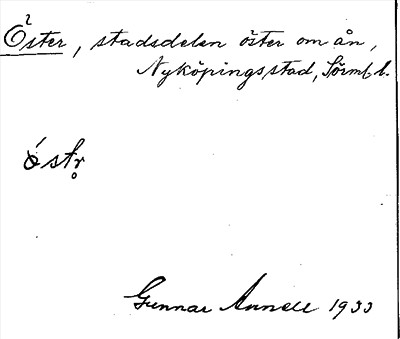 2
Öster, stadsdelen öster om ån,
Nyköpings stad, Sörml l.
östr̥
Gunnar Annell 1933